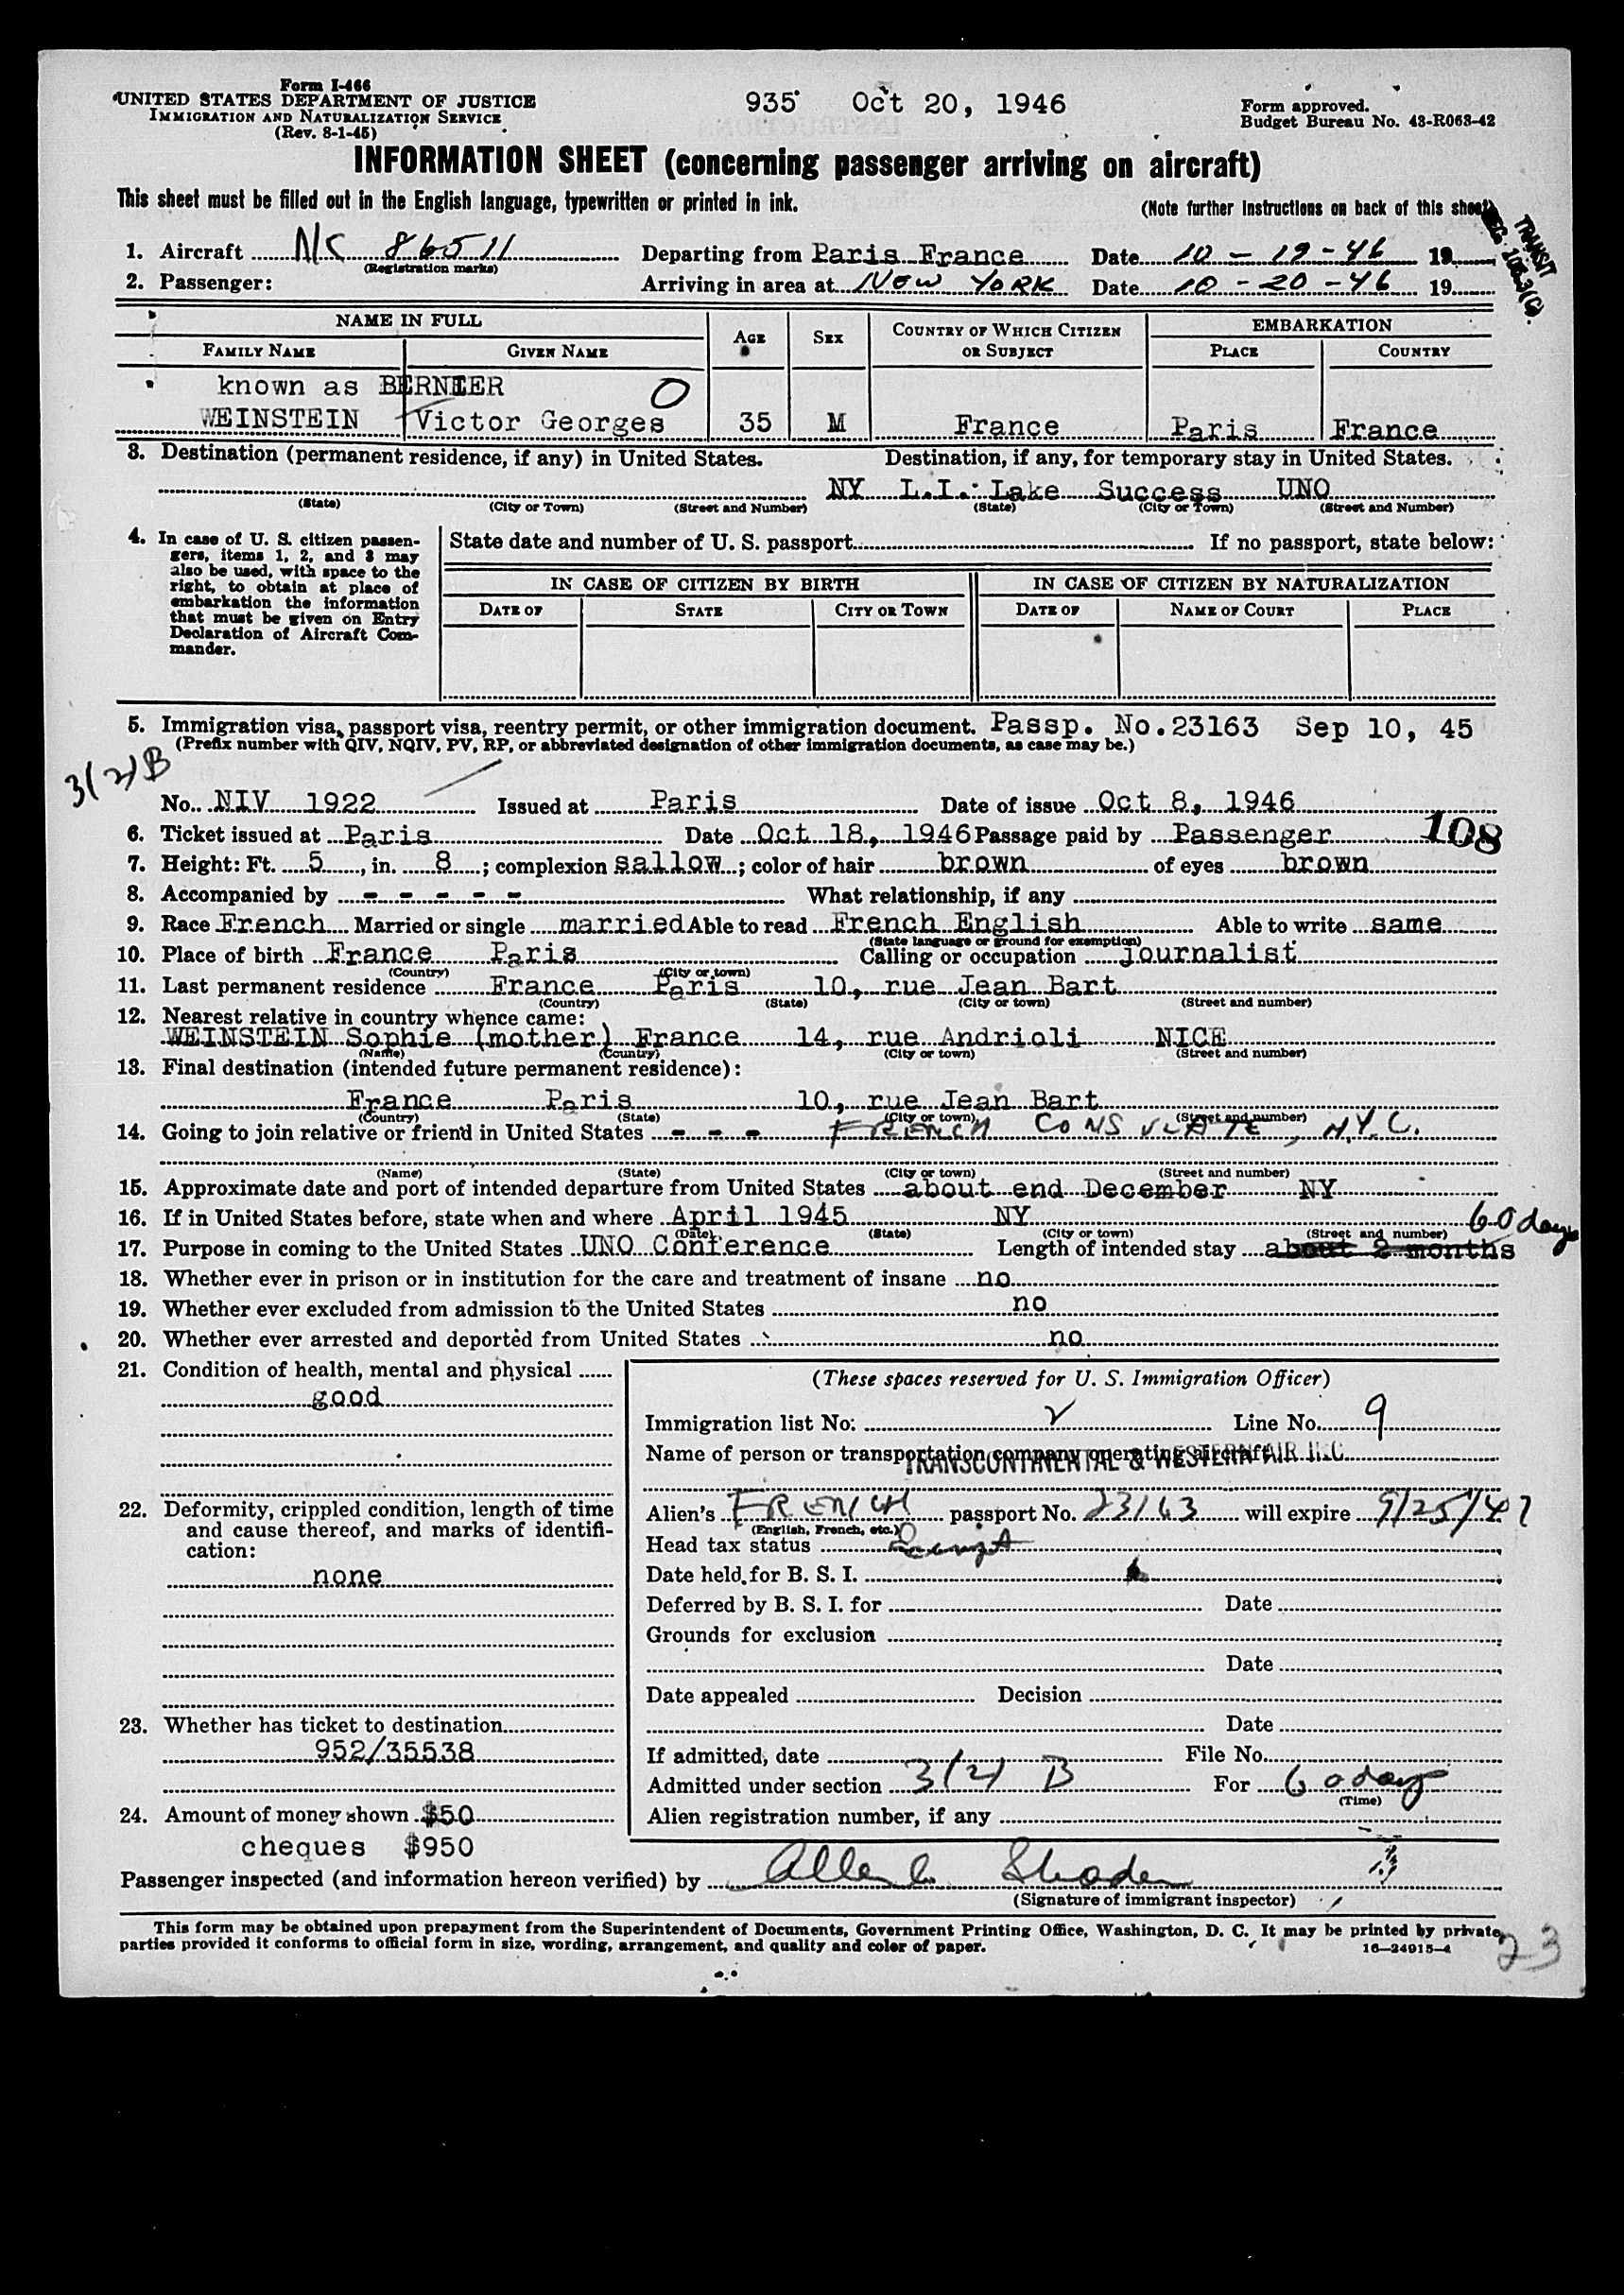 Form I-466
UNITED STATES DEPARTMENT OF JUSTICE
IMMIGRATION AND NATURALIZATION SERVICE
(Rev. 8-1-45)
935 Oct 20, 1946
Form approved.
Budget Bureau No. 43-R063-42
INFORMATION SHEET (concerning passenger arriving on aircraft)
This sheet must be filled out in the English language, typewritten or printed in ink.
(Note further instructions on back of this sheet)
TRANSIT
1. Aircraft NC 86511 Departing from Paris France Date 10-19-46 19
(Registration marks)
2. Passenger: Arriving in area at NEW YORK Date 10-20-46 19
NAME IN FULL AGE SEX COUNTRY OF WHICH CITIZEN OR SUBJECT EMBARKATION
FAMILY NAME GIVEN NAME PLACE COUNTRY
known as BERNIER
WEINSTEIN Victor Georges 35 M France Paris France
3. Destination (permanent residence, if any) in United States. Destination, if any, for temporary stay in United States.
NY L.I. Lake Success UNO
(State) (City or Town) (Street and Number) (State) (City or Town) (Street and Number)
4. In case of U. S. citizen passengers, items 1, 2, and 3 may also be used, with space to the right, to obtain at place of embarkation the information that must be given on Entry Declaration of Aircraft Commander.
State date and number of U. S. passport If no passport, state below:
IN CASE OF CITIZEN BY BIRTH IN CASE OF CITIZEN BY NATURALIZATION
DATE OF STATE CITY OR TOWN DATE OF NAME OF COURT PLACE
5. Immigration visa, passport visa, reentry permit, or other immigration document. Passp. No.23163 Sep 10, 45
(Prefix number with QIV, NQIV, PV, RP, or abbreviated designation of other immigration documents, as case may be.)
3(2)B
No. NIV 1922 Issued at Paris Date of issue Oct 8, 1946
6. Ticket issued at Paris Date Oct 18, 1946 Passage paid by Passenger 108
7. Height: Ft. 5, in. 8; complexion sallow; color of hair brown of eyes brown
8. Accompanied by - - - - - What relationship, if any
9. Race French Married or single married Able to read French English Able to write same
(State language or ground for exemption)
10. Place of birth France Paris Calling or occupation journalist
(Country) (City or town)
11. Last permanent residence France Paris 10, rue Jean Bart
(Country) (State) (City or town) (Street and number)
12. Nearest relative in country whence came:
WEINSTEIN Sophie (mother) France 14, rue Andrioli NICE
(Name) (Country) (City or town) (Street and number)
13. Final destination (intended future permanent residence):
France Paris 10, rue Jean Bart
(Country) (State) (City or town) (Street and number)
14. Going to join relative or friend in United States - - - FRENCH CONSULATE, N.Y.C.
(Name) (State) (City or town) (Street and number)
15. Approximate date and port of intended departure from United States about end December NY
16. If in United States before, state when and where April 1945 NY
(Date) (State) (City or town) (Street and number)
60 days
17. Purpose in coming to the United States UNO Conference Length of intended stay about 2 months
18. Whether ever in prison or in institution for the care and treatment of insane no
19. Whether ever excluded from admission to the United States no
20. Whether ever arrested and deported from United States no
21. Condition of health, mental and physical
good
22. Deformity, crippled condition, length of time and cause thereof, and marks of identification:
none
23. Whether has ticket to destination
952/35538
24. Amount of money shown $50
cheques $950
(These spaces reserved for U. S. Immigration Officer)
Immigration list No. Line No. 9
Name of person or transportation company operating aircraft
TRANSCONTINENTAL & WESTERN AIR INC
Alien's FRENCH passport No. 23163 will expire 9/25/47
(English, French, etc.)
Head tax status Exempt
Date held for B. S. I.
Deferred by B. S. I. for Date
Grounds for exclusion
Date
Date appealed Decision
Date
If admitted, date File No.
Admitted under section 3(2) B For 60 days
(Time)
Alien registration number, if any
Passenger inspected (and information hereon verified) by
(Signature of immigrant inspector)
This form may be obtained upon prepayment from the Superintendent of Documents, Government Printing Office, Washington, D. C. It may be printed by private
parties provided it conforms to official form in size, wording, arrangement, and quality and color of paper. 16—24915-4
23